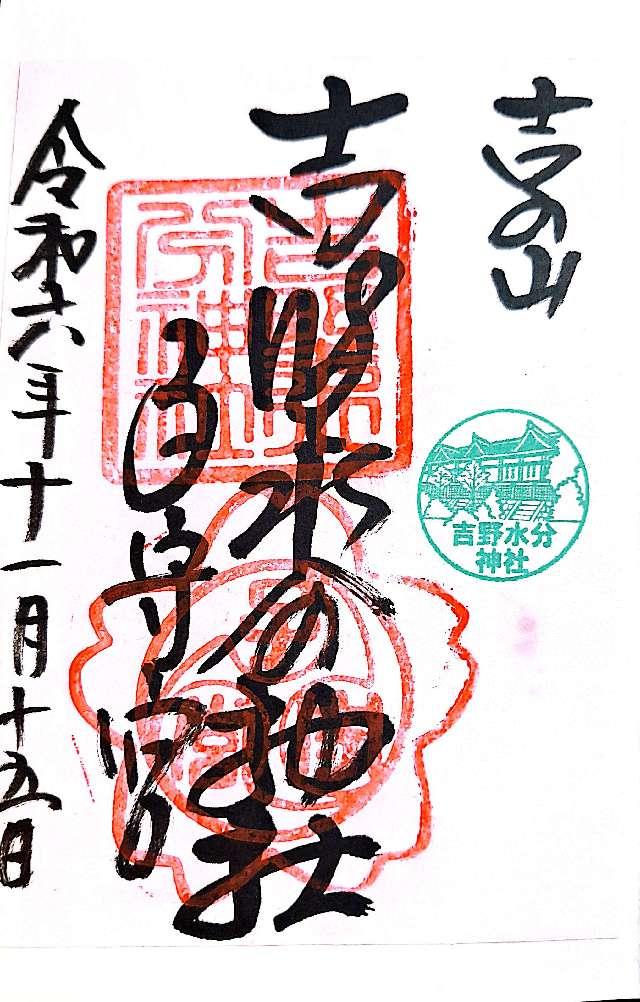 吉野山
吉野水分神社
子守宮
令和六年十一月十五日
吉野水分
神社
吉野水
分神社